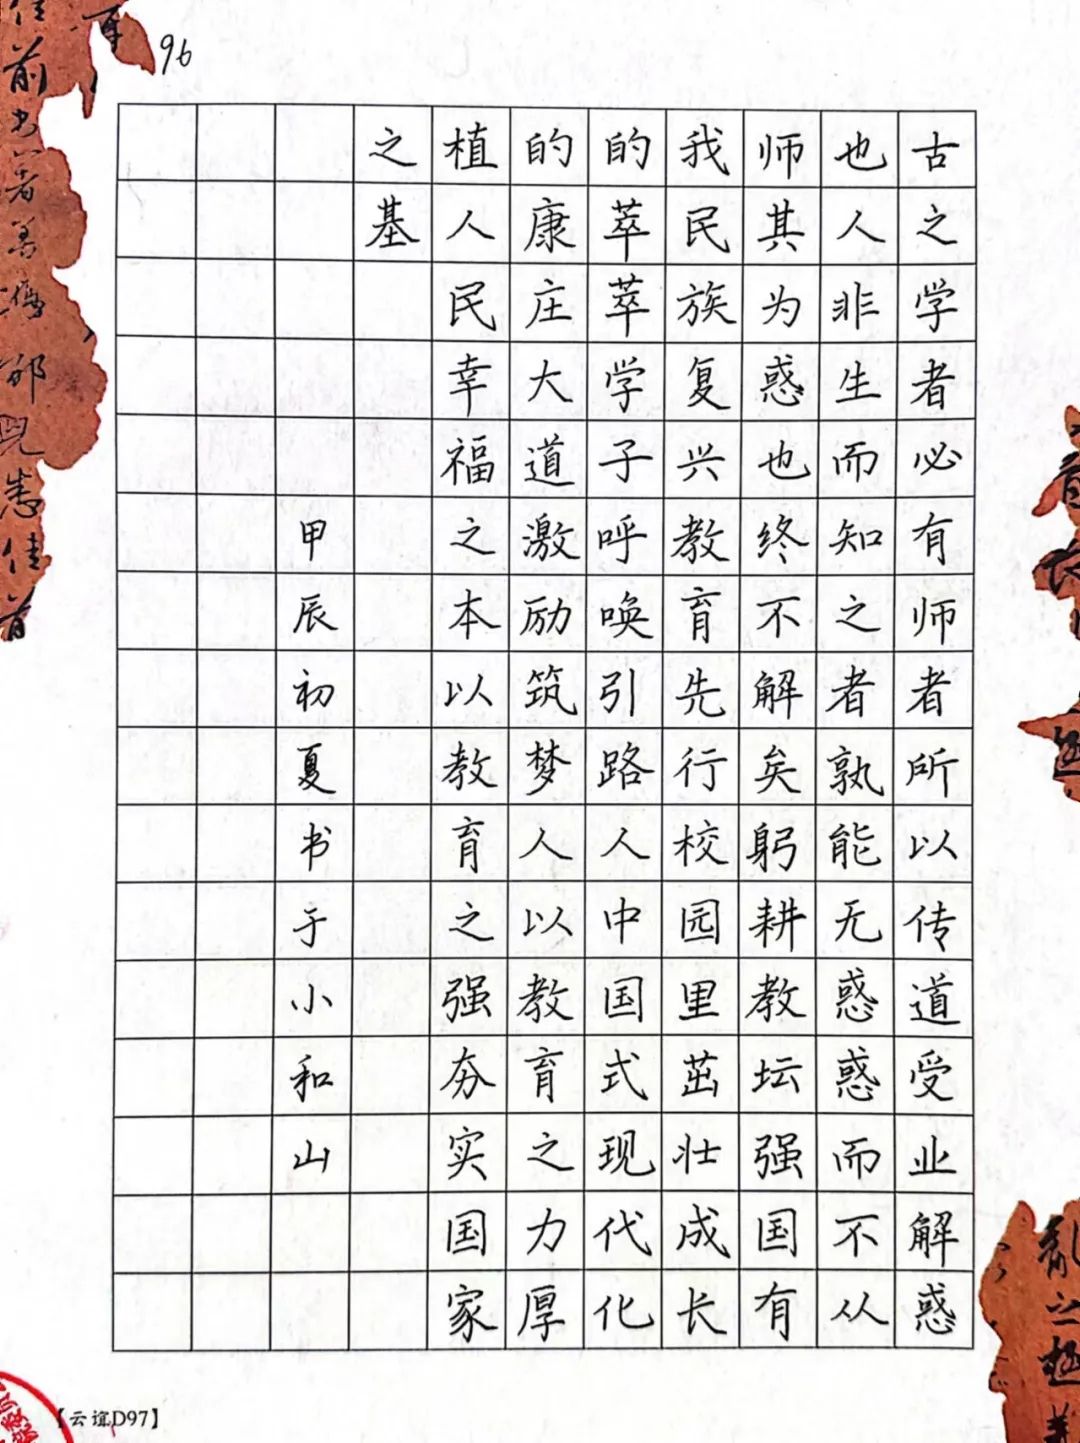 96
古之学者必有师者所以传道受业解惑
也人非生而知之者孰能无惑惑而不从
师其为惑也终不解矣躬耕教坛强国有
我民族复兴教育先行校园里茁壮成长
的莘莘学子呼唤引路人中国式现代化
的康庄大道激励筑梦人以教育之力厚
植人民幸福之本以教育之强夯实国家
之基
甲辰初夏书于小和山
【云谊D97】